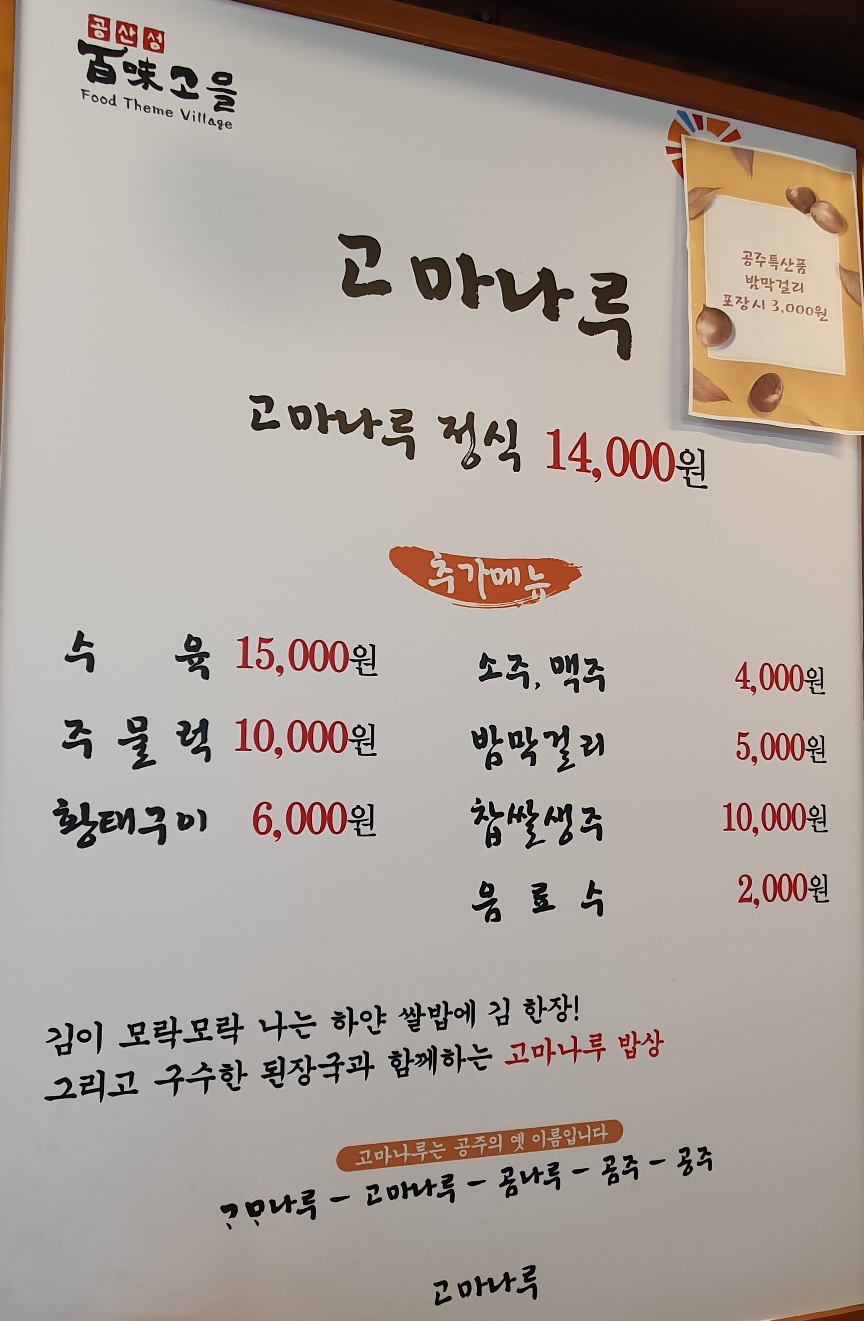 공산성
百味고을
Food Theme Village
공주특산품
밤막걸리
포장시 3,000원
고마나루
고마나루 정식 14,000원
추가메뉴
수육 15,000원
주물럭 10,000원
황태구이 6,000원
소주, 맥주 4,000원
밤막걸리 5,000원
찹쌀생주 10,000원
음료수 2,000원
김이 모락모락 나는 하얀 쌀밥에 김 한장!
그리고 구수한 된장국과 함께하는 고마나루 밥상
고마나루는 공주의 옛 이름입니다
나루 - 고마나루 - 곰나루 - 곰주 - 공주
고마나루